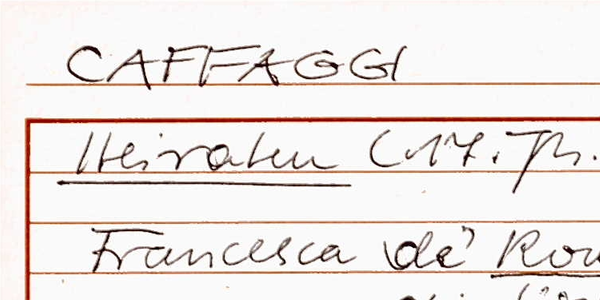 CAFFAGGI
Heiraten (17. Jh.
Francesca de'